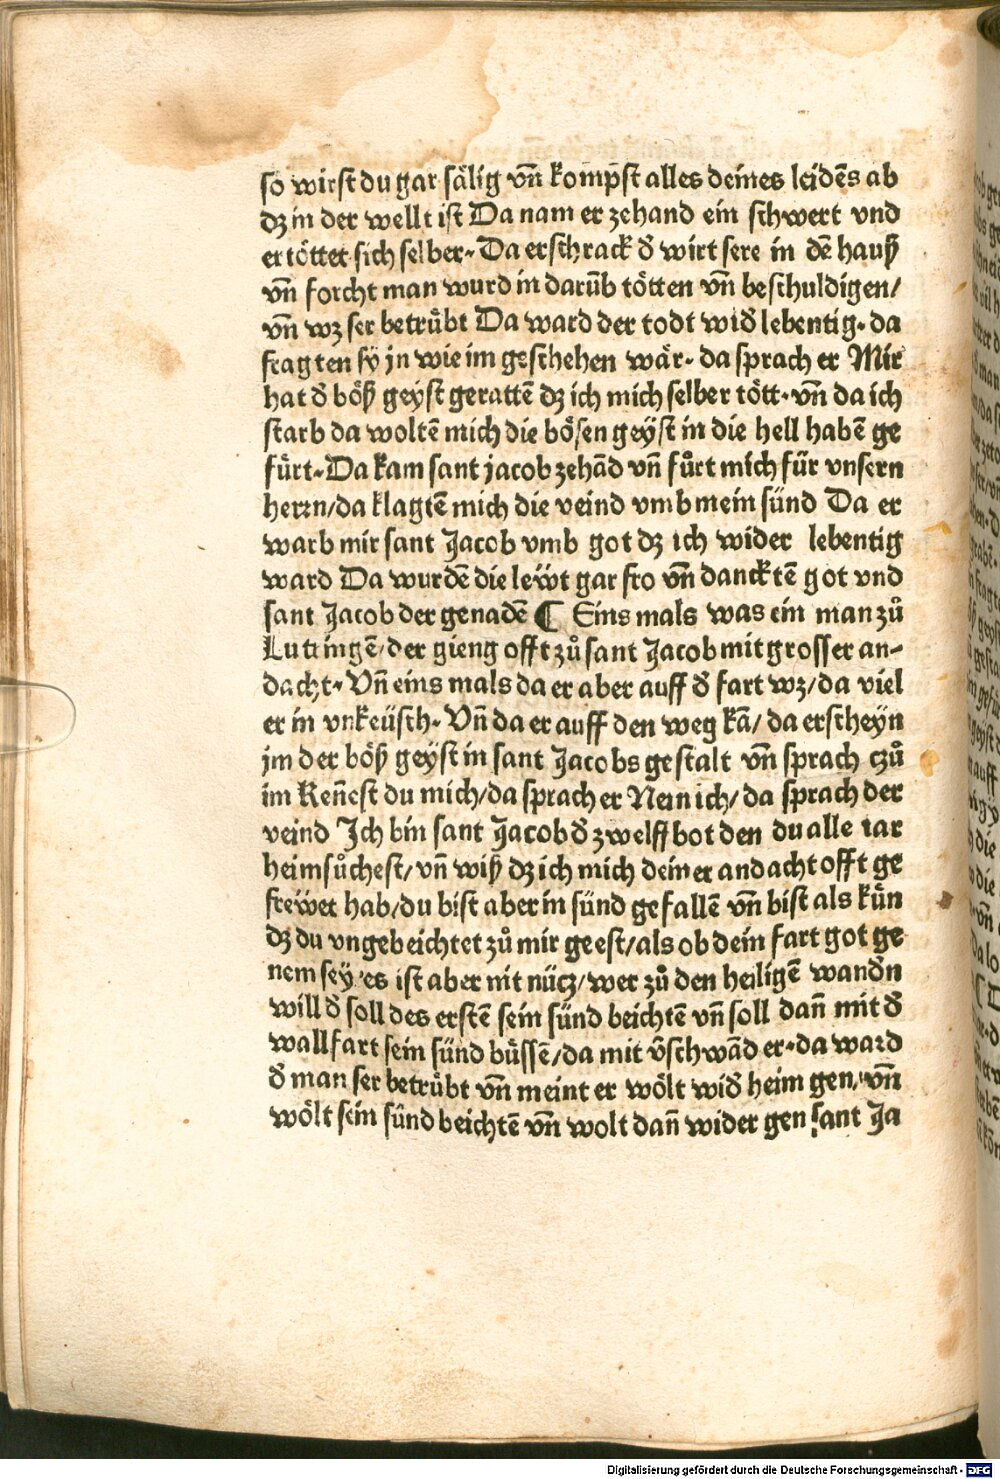 so wirst du gar sålig vn̄ kompst alles deines leidēs ab
dz in der wellt ist Da nam er zehand ein schwert vnd
er tôttet sich selber. Da erschrack d̄ wirt sere in dē hauß
vn̄ forcht man wurd in darūb tôtten vn̄ beschuldigen/
vn̄ wz ser betrůbt Da ward der todt wid̄ lebentig. da
fragten sÿ jn wie im geschehen wår. da sprach er Mir
hat d̄ bôß geyst gerattē dz ich mich selber tôtt. vn̄ da ich
starb da woltē mich die bôsen geÿst in die hell habē ge
fürt. Da kam sant jacob zehād vn̄ fůrt mich für vnsern
herrn/da klagtē mich die veind vmb mein sünd Da er
warb mir sant Jacob vmb got dz ich wider lebentig
ward Da wurdē die leẅt gar fro vn̄ dancktē got vnd
sant Jacob der genadē ¶ Eins mals was ein man zů
Luttingē/der gieng offt zů sant Jacob mit grosser an-
dacht. Vn̄ eins mals da er aber auff d̄ fart wz/da viel
er in vnkeüsch. Vn̄ da er auff den weg kā/da erscheÿn
jm der bôß geÿst in sant Jacobs gestalt vn̄ sprach czů
im Ken̄est du mich/da sprach er Nein ich/da sprach der
veind Ich bin sant Jacob d̄ zwelffbot den du alle iar
heimsůchest/vn̄ wiß dz ich mich deiner andacht offt ge
freẅet hab/du bist aber in sünd gefallē vn̄ bist als kün
dz du vngebeichtet zů mir geest/als ob dein fart got ge
nem seÿ/es ist aber nit nücz/wer zů den heiligē wand̄n
will d̄ soll des erstē sein sünd beichtē vn̄ soll dan̄ mit d̄
wallfart sein sünd bůssē/da mit v̄schwād er. da ward
d̄ man ser betrůbt vn̄ meint er wôlt wid̄ heim gen/vn̄
wôlt sein sünd beichtē vn̄ wolt dan̄ wider gen sant Ja
Digitalisierung gefördert durch die Deutsche Forschungsgemeinschaft - DFG